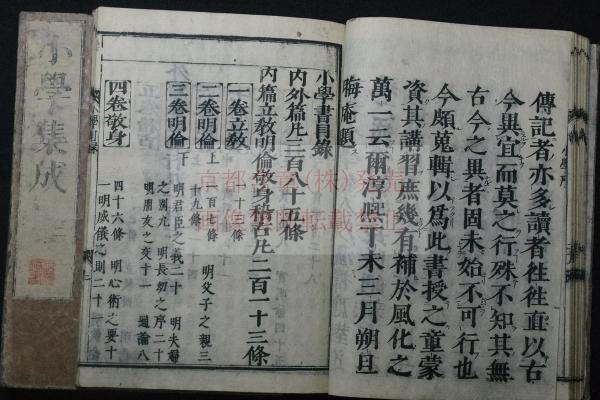 傳記者亦多讀者徃徃直以古
今異宜而莫之行殊不知其無
古今之異者固未始不可行也
今頗蒐輯以為此書授之童蒙
資其講習庶幾有補於風化之
萬一云爾淳熈丁未三月朔旦
晦庵題
小學書目錄
內外篇凡三百八十五條
內篇立教明倫敬身稽古凡二百一十三條
一卷立教
一十三條
二卷明倫上
一百七條 明父子之親三
十九條
三卷明倫下
明君臣之義二十 明夫婦
之別九 明長幼之序二十
明朋友之交十一 通論八
四卷敬身
四十六條 明心術之要十
一明威儀之則二十一
小學集成
小學序